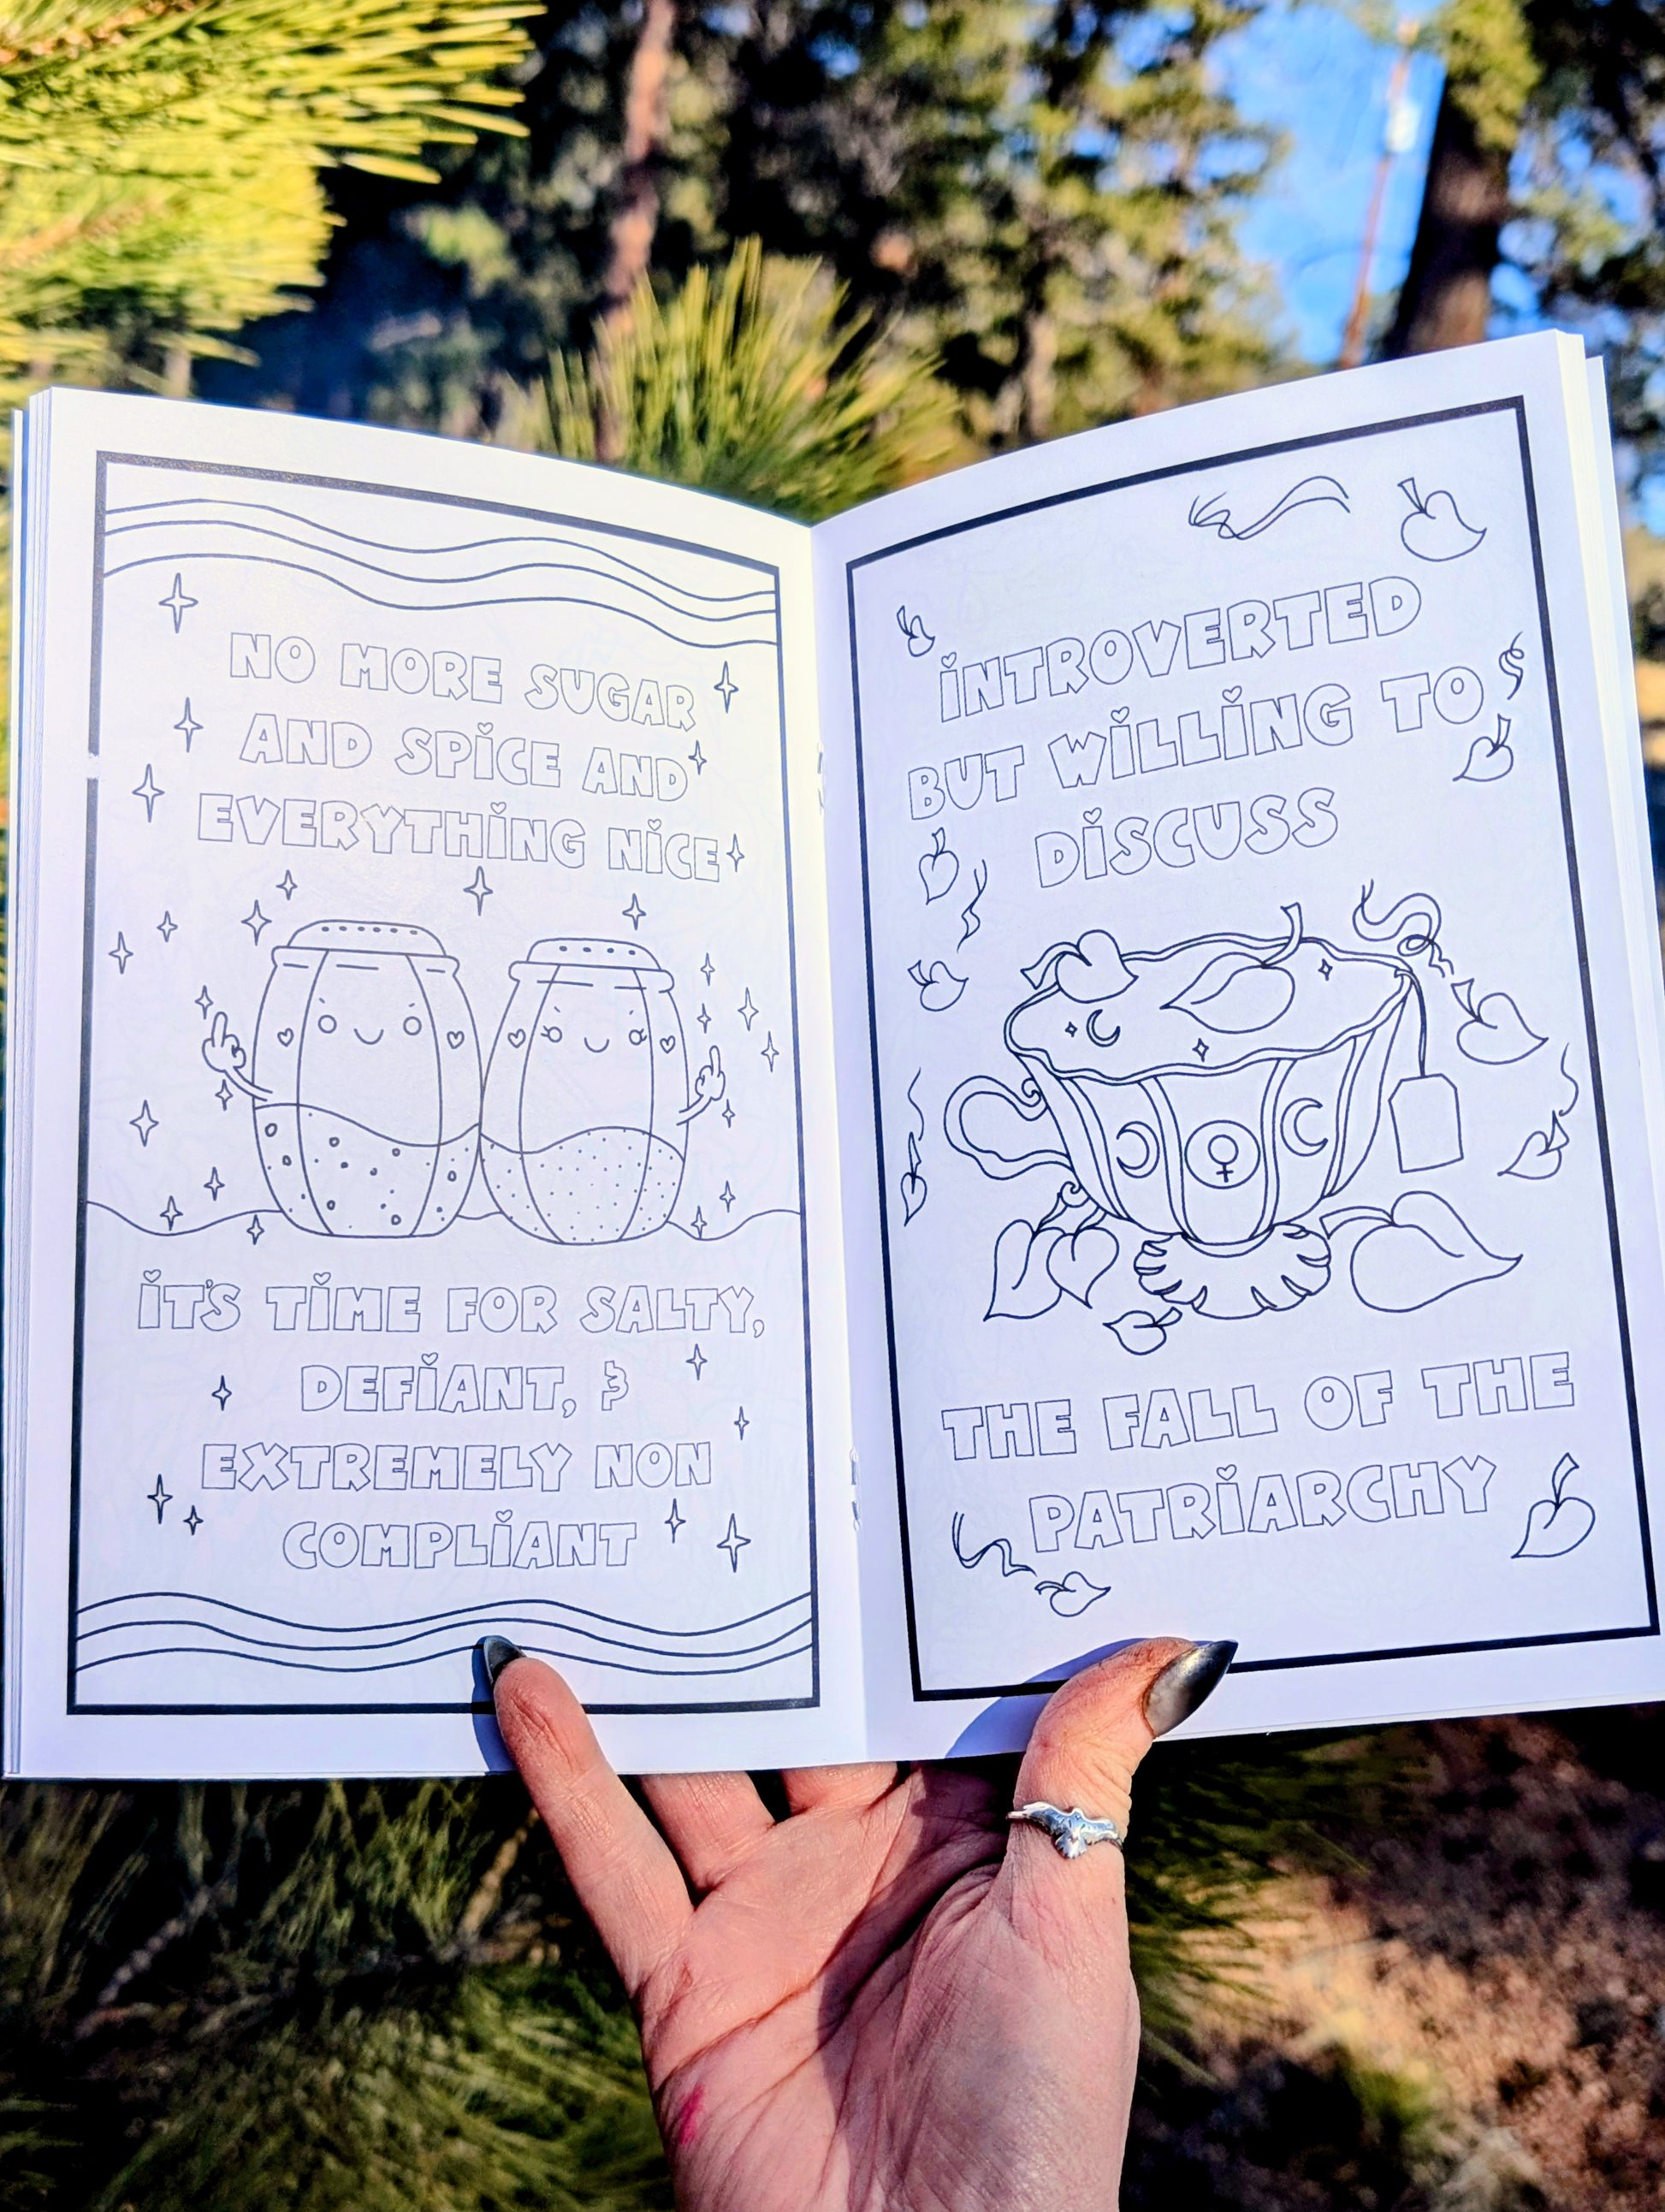 NO MORE SUGAR
AND SPICE AND
EVERYTHING NICE
IT'S TIME FOR SALTY,
DEFIANT, &
EXTREMELY NON
COMPLIANT
INTROVERTED
BUT WILLING TO
DISCUSS
THE FALL OF THE
PATRIARCHY